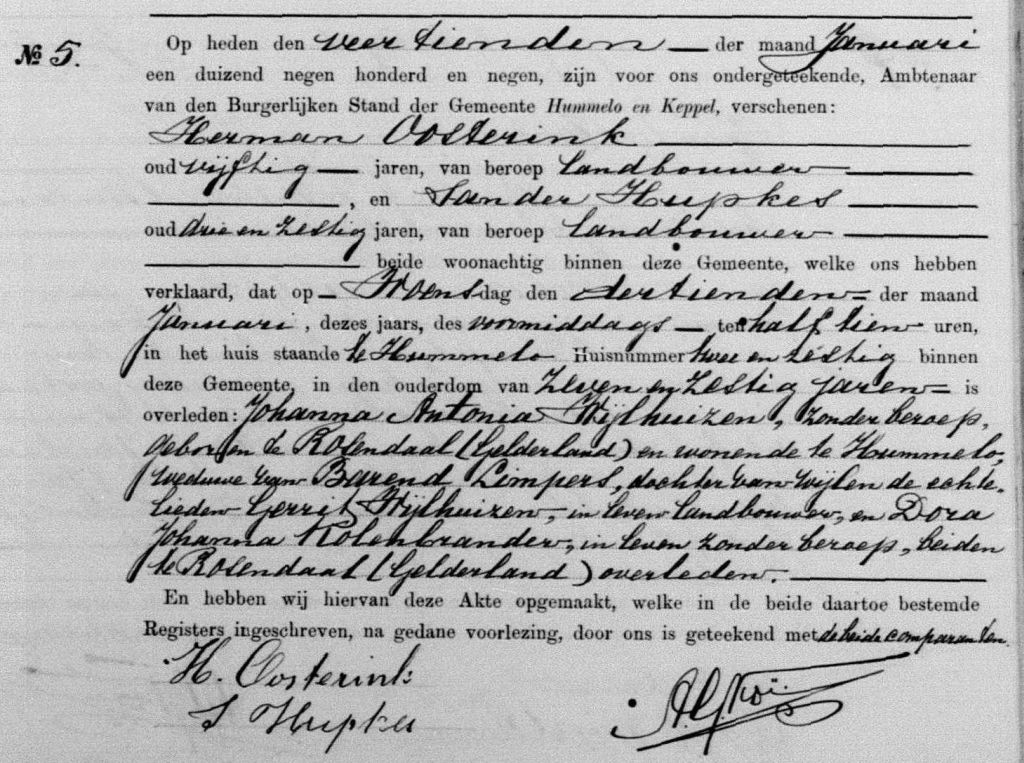 № 5.
Op heden den veertienden der maand Januari
een duizend negen honderd en negen, zijn voor ons ondergeteekende, Ambtenaar
van den Burgerlijken Stand der Gemeente Hummelo en Keppel, verschenen:
Herman Oosterink
oud vijftig jaren, van beroep landbouwer
, en Sander Hupkes
oud drie en zestig jaren, van beroep landbouwer
beide woonachtig binnen deze Gemeente, welke ons hebben
verklaard, dat op Woensdag den dertienden der maand
Januari, dezes jaars, des voormiddags ten half tien uren,
in het huis staande te Hummelo Huisnummer twee en zestig binnen
deze Gemeente, in den ouderdom van zeven en zestig jaren is
overleden: Johanna Antonia Wijlhuizen, zonder beroep,
geboren te Rosendaal (Gelderland) en wonende te Hummelo,
weduwe van Barend Limpers, dochter van wijlen de echte-
lieden Gerrit Wijlhuizen, in leven landbouwer, en Dora
Johanna Kolenbrander, in leven zonder beroep, beiden
te Rosendaal (Gelderland) overleden.
En hebben wij hiervan deze Akte opgemaakt, welke in de beide daartoe bestemde
Registers ingeschreven, na gedane voorlezing, door ons is geteekend met de beide comparanten.
H. Oosterink
S Hupkes